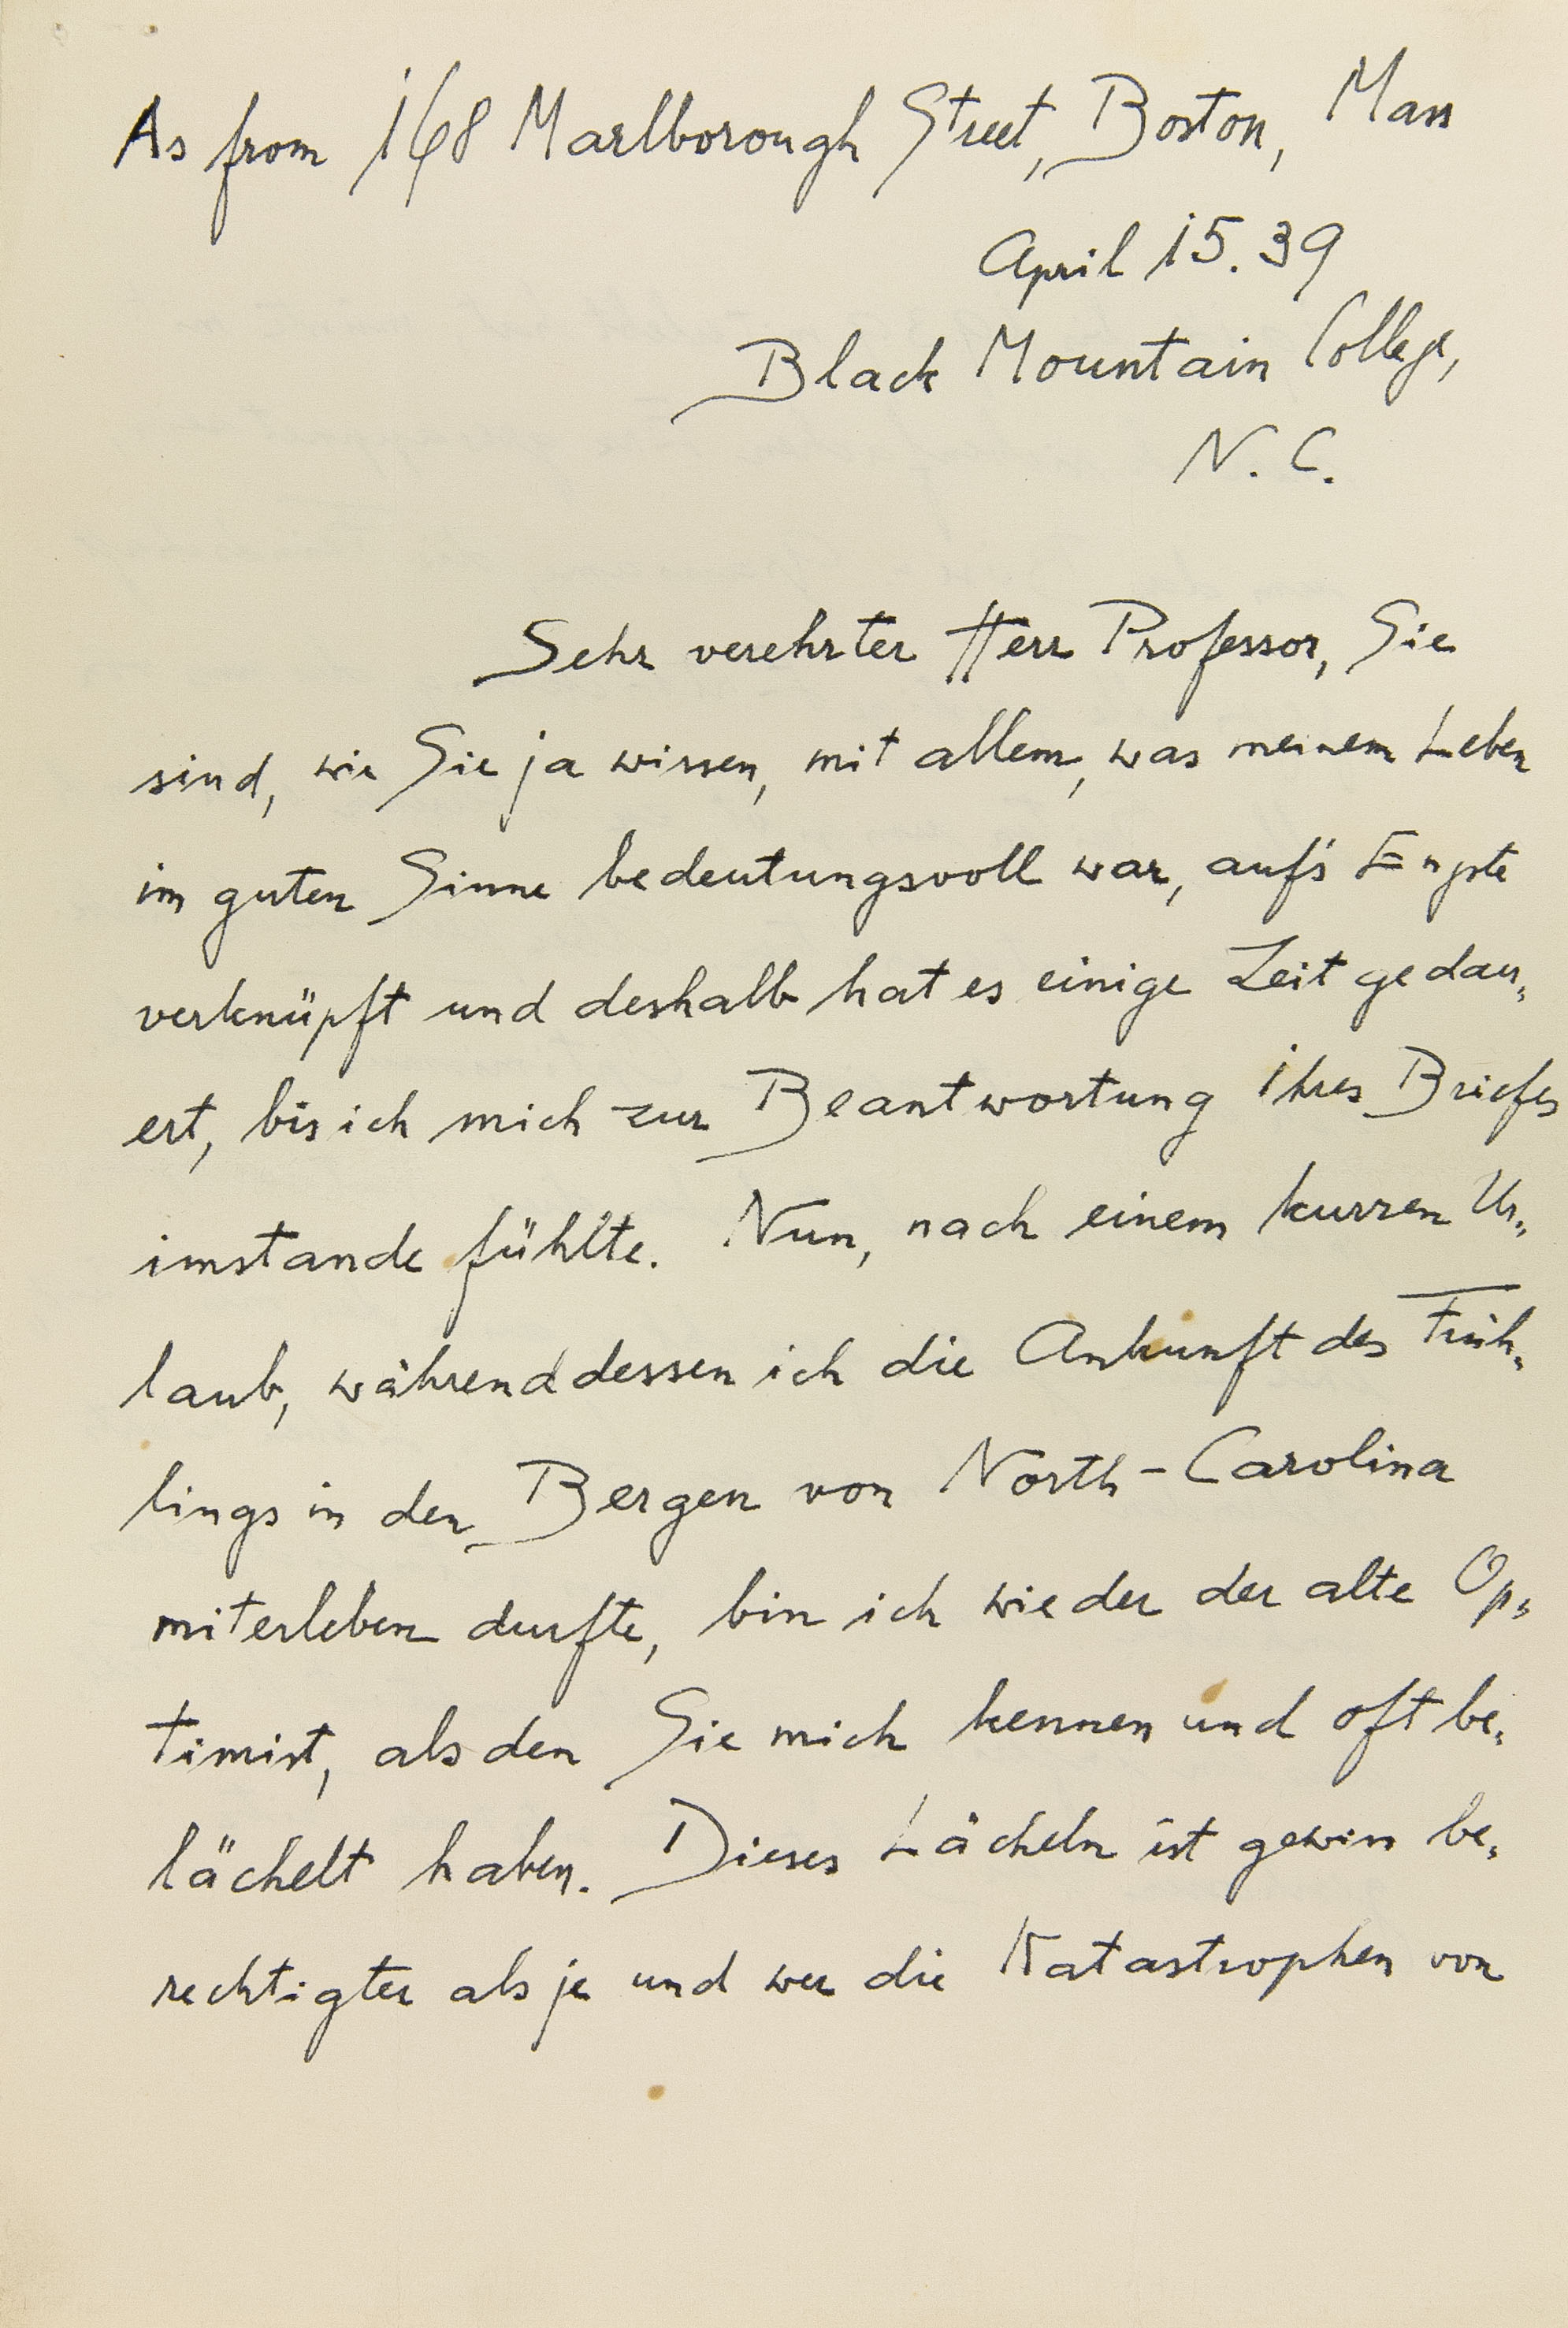 As from 168 Marlborough Street, Boston, Mass
April 15. 39
Black Mountain College,
N. C.
Sehr verehrter Herr Professor, Sie
sind, wie Sie ja wissen, mit allem, was meinem Leben
im guten Sinne bedeutungsvoll war, auf's Engste
verknüpft und deshalb hat es einige Zeit gedau-
ert, bis ich mich zur Beantwortung ihres Briefes
imstande fühlte. Nun, nach einem kurzen Ur-
laub, währenddessen ich die Ankunft des Früh-
lings in den Bergen von North-Carolina
miterleben durfte, bin ich wieder der alte Op-
timist, als den Sie mich kennen und oft be-
lächelt haben. Dieses Lächeln ist gewiss be-
rechtigter als je und wer die Katastrophen von